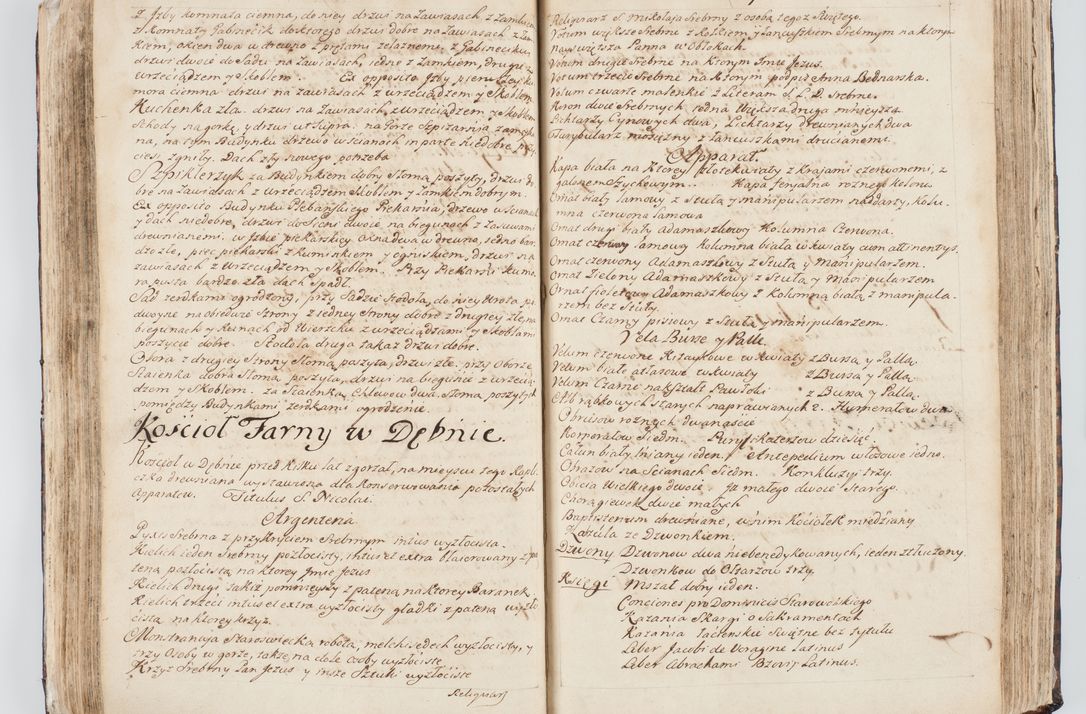 z Izby komnata ciemna, do niey drzwi na Zawiasach z Zamkiem
z Komnaty Gabinecik do ktorego drzwi dobre na Zawiasach z Zam-
kiem, okien dwa w drewno z prętami żelaznemi, z Gabineciku
drzwi dwoie do Sadu na Zawiasach, iedne z Zamkiem, drugie z
wrzeciądzem y Skoblem. Ex opposito Izby
mora ciemna drzwi na zawiasach z wrzeciądzem y Skoblem
Kuchenka zła. drzwi na Zawiasach z wrzeciądzem y Skoblem
Schody na gorkę y drzwi ut Supra, na Gorze Spizarnia zamczy-
na, na tym Budynku drzewo w ścianach in parte niedobre, przy
ciesy zgniły. Dach zły nowego potrzeba
Szpiklerzyk za Budynkiem dobry Słomą poszyty, drzwi do-
bre na Zawiasach z Wrzeciądzem Skoblem y Zamkiem dobrym.
Ex opposito Budynku Plebańskiego Piekarnia, drzewo w ścianach
y dach niedobre, drzwi do Sieni dwoie na biegunach z Zasuwami
drewnianemi. w Izbie piekarskiey Okna dwa w drewno, iedno bar-
dzo złe, piec piekarski z kuminkiem y ogniskiem, drzwi na
zawiasach z Wrzeciądzem y Skoblem. Przy Piekarni Kumo-
ra pusta bardzo zła dach Spadł.
Sad żerdkami ogrodzony, przy Sadzie Stodoła, do niey Wrota po-
dwoyne na obiedwie Strony z iedney Strony dobre z drugiey złe, na
biegunach y Kunach od Wierzchu z wrzeciądzami y Skoblami
poszycie dobre. Stodoła druga także drzwi dobre.
Obora z drugiey Strony Słomą poszyta, drzwi złe. przy Oborze
Staienka dobra Słomą poszyta, drzwi na biegunie z wrzecią-
dzem y Skoblem. za Staienką Chlewow dwa Słomą poszytych
pomiędzy Budynkami żerdkami ogrodzenie.
Kościoł Farny w Dębnie.
Kościoł w Dębnie przed Kilku lat zgorzał, na mieyscu tego Kapli-
czka drewniana wystawiona dla Konserwowania pozostałych
Apparatow. Titulus S. Nicolai.
Argenteria
Pyxis Srebrna z przykryciem Srebrnym intus wyzłocista.
Kielich ieden Srebrny pozłocisty, intus et extra blaserowany z pa-
teną pozłocistą na ktorey Imie Jezus
Kielich drugi także pomnieyszy z pateną na ktorey Baranek
Kielich trzeci intus et extra wyzłocisty gładki z pateną wyzło-
cistą na ktorey krzyż.
Monstrancya Staroswiecka robota, melchisedech wyzłocisty, y
trzy Osoby w gorze, także na dole Osoby wyzłociste
Krzyż Srebrny Pan Jezus y insze Sztuki wyzłociste
Religiarz
Religiarz S. Mikołaja Srebrny z osobą tegoz Swiętego.
Votum większe Srebrne z Kołkiem y Łancuszkiem Srebrnym na ktorym
Nayswiętsza Panna w Obłokach.
Votum drugie Srebrne na ktorym Imie Jezus.
Votum trzecie Srebrne na ktorym podpis Anna Bednarska.
Votum czwarte malenkie z Literami Srebrne.
Koron dwie Srebrnych iedna większa druga mnieysza
Lichtarzy Cynowych dwa, Lichtarzy drewnianych dwa
Turybularz mosiężny z Łancuszkami drucianemi.
Apparat.
Kapa biała na ktorey złote kwiaty z krajami czerwonemi, z
galonem Szychowym. Kapa feryalna rożnego koloru
Ornat biały lamowy z Stułą y manipularzem nadarty, kolu-
mna czerwona lamowa
Ornat drugi biały Adamaszkowy kolumna Czerwona.
Ornat czerwony lamowy kolomna biała w kwiaty cum attinentys.
Ornat czerwony Adamaszkowy z Stułą y Manipularzem.
Ornat Zielony Adamaszkowy z Stułą y Manipularzem
Ornat fioletowy Adamaszkowy z Kolomną białą z manipula-
rzem bez Stuły.
Ornat Czarny pisiowy z Stułą y manipularzem.
Vela Bursæ y Pallæ.
Velum czerwone Kitaykowe w kwiaty z Bursą y Pallą.
Velum białe atłasowe w kwiaty z Bursą y Pallą.
Velum Czarne na kształt Pawłoki z Bursą y Pallą.
Alb rąbkowych Starych naprawianych 2. Humerałow dwa
Obrusow rożnych dwanascie
Korporałow Siedm. Puryfikaterzow dziesięć
Całun biały lniany ieden. Antepedium włosowe iedno.
Obrazow na Scianach Siedm. Konkluzyi trzy.
Obicia Wielkiego dwoie Iz małego dwoie Starego.
Chorągiewek dwie małych
Baptisterium drewniane, w nim Kociołek miedziany
Katula ze Dzwonkiem.
Dzwony Dzwonow dwa niebenedykowanych, ieden stłuczony
Dzwonkow do Ołtarzow trzy.
Księgi Mszał dobry ieden.
Conciones pro Dominicis Starowolskiego
Kazania Skargi o Sakramentach
Kazania łacienskie Swiętne bez tytułu
Liber Jacobi de Voragine Latinus
Liber Abrachami Bzovij Latinus.